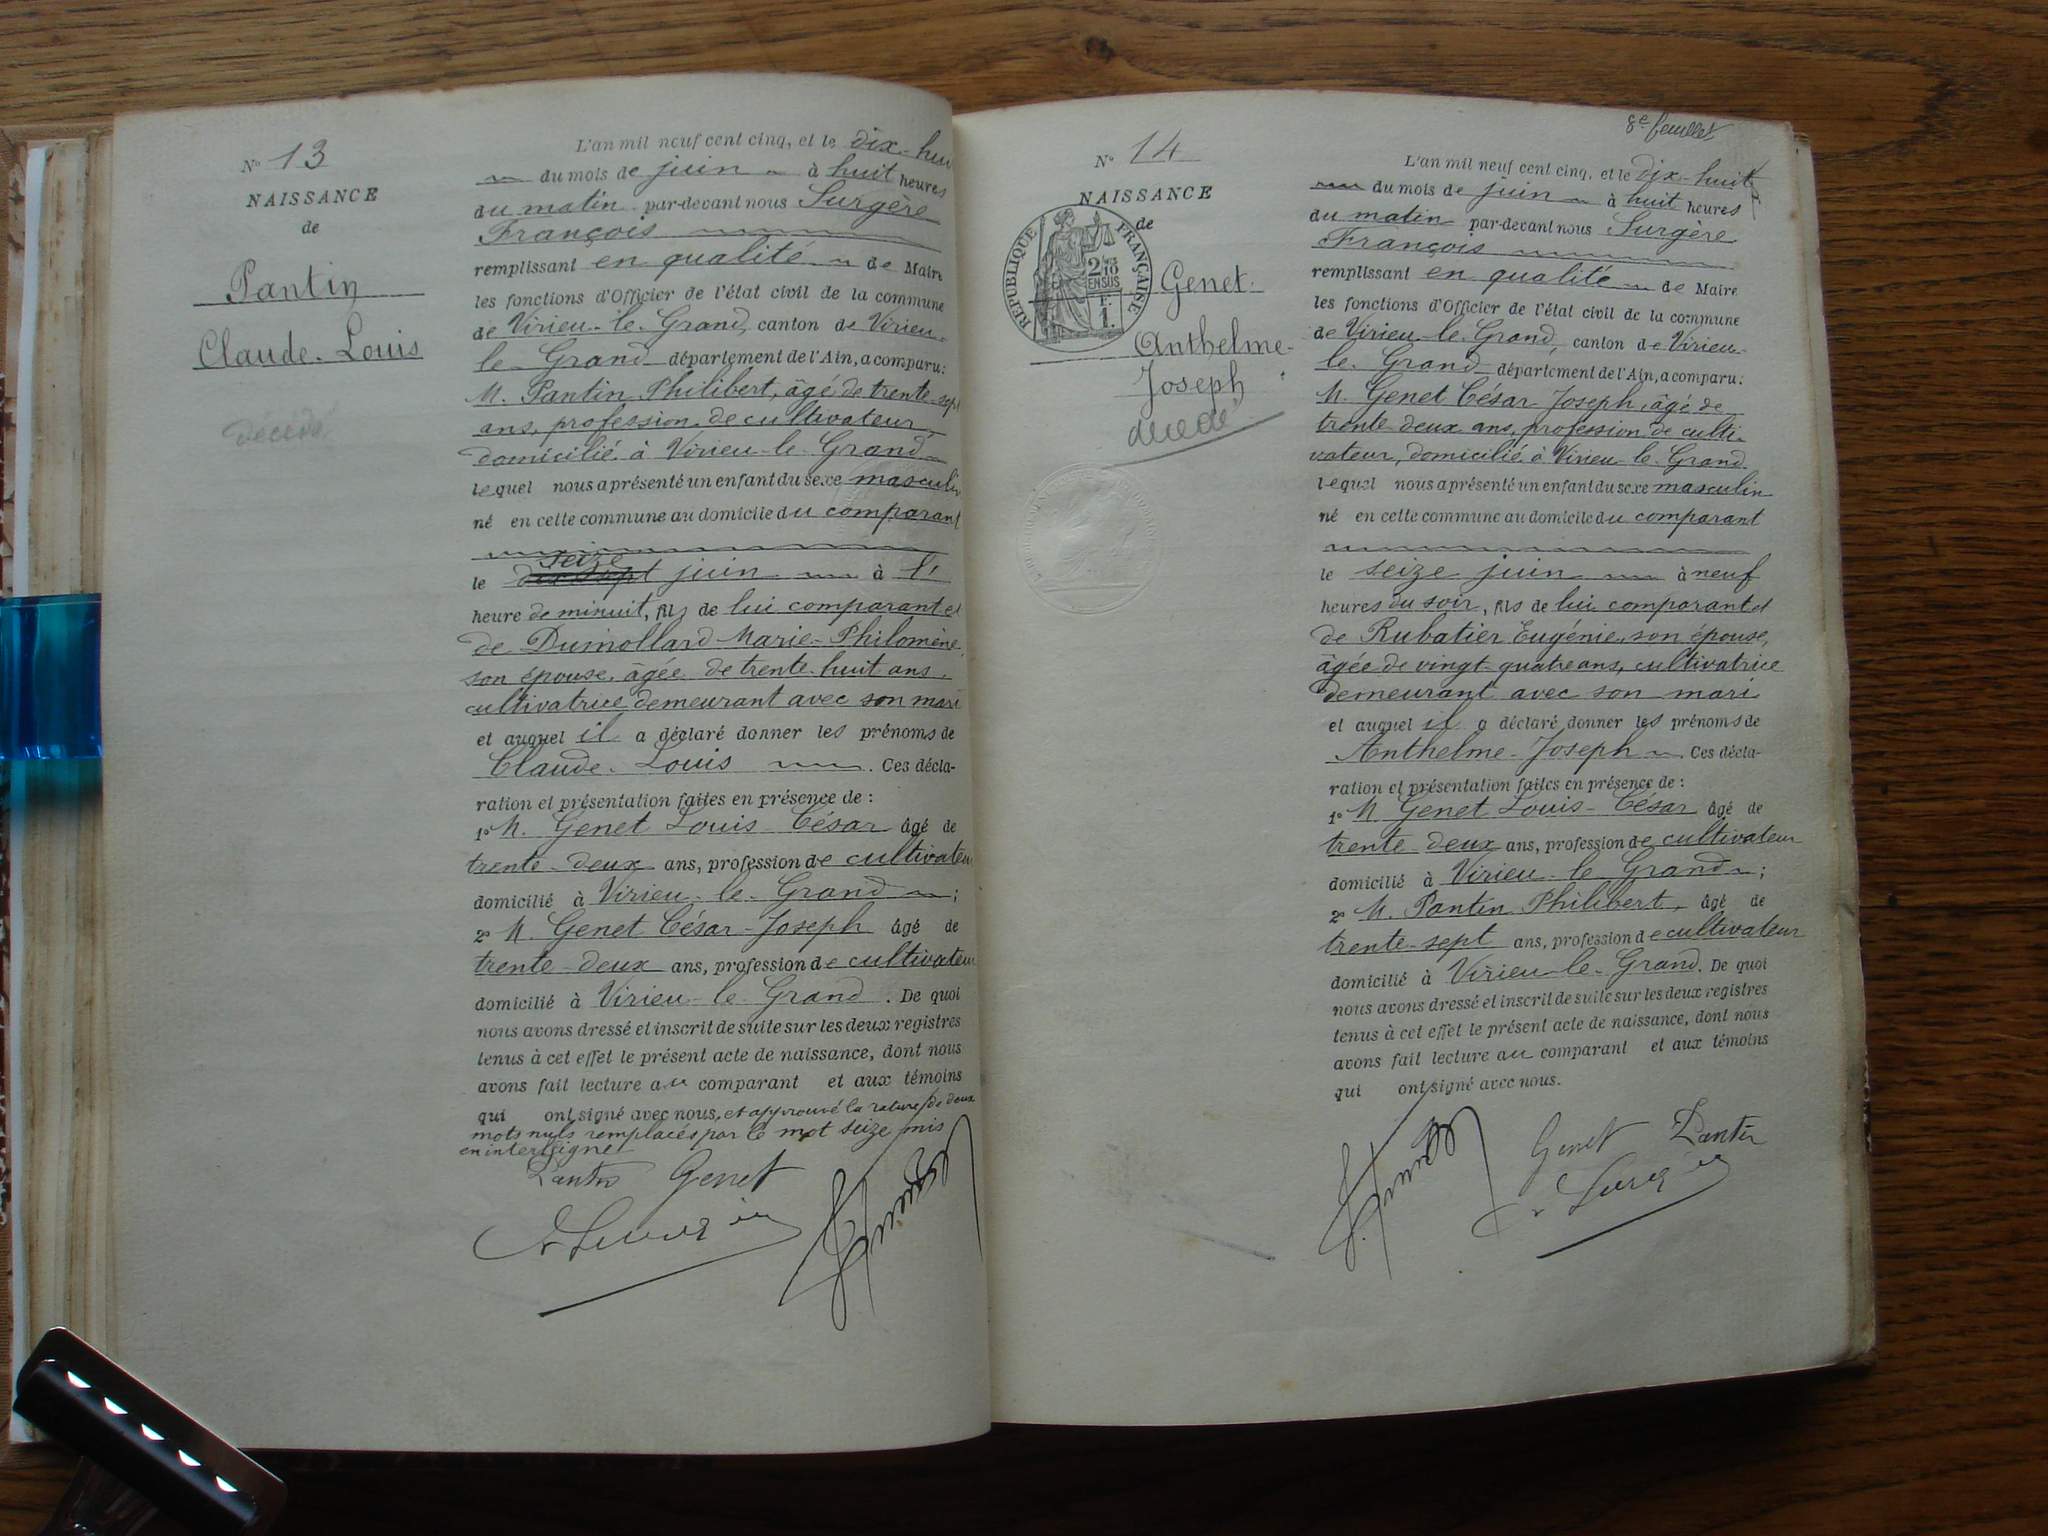 N° 13
NAISSANCE
de
Pantin
Claude-Louis
décédé
L'an mil neuf cent cinq, et le dix-hui
du mois de juin à huit heures
du matin par-devant nous Surgère
François
remplissant en qualité de Maire
les fonctions d'Officier de l'état civil de la commune
de Virieu-le-Grand, canton de Virieu-
le-Grand département de l'Ain, a comparu:
M. Pantin Philibert, âgé de trente-sept
ans, profession de cultivateur,
domicilié à Virieu-le-Grand
lequel nous a présenté un enfant du sexe masculin
né en cette commune au domicile du comparant
seize
le dix-sept juin à l'
heure de minuit, fils de lui comparant et
de Dumollard Marie-Philomène,
son épouse, âgée de trente-huit ans,
cultivatrice demeurant avec son mari
et auquel il a déclaré donner les prénoms de
Claude-Louis . Ces décla-
ration et présentation faites en présence de :
1° M. Genet Louis-César âgé de
trente-deux ans, profession de cultivateur
domicilié à Virieu-le-Grand ;
2° M. Genet César-Joseph âgé de
trente-deux ans, profession de cultivateur
domicilié à Virieu-le-Grand . De quoi
nous avons dressé et inscrit de suite sur les deux registres
tenus à cet effet le présent acte de naissance, dont nous
avons fait lecture au comparant et aux témoins
qui ont signé avec nous, et approuvé la rature de deux
mots nuls remplacés par le mot seize mis
en interligne
Pantin Genet
8e feuillet
N° 14
NAISSANCE
de
RÉPUBLIQUE FRANÇAISE
2/10
EN SUS
F.
1.
Genet
Anthelme-
Joseph
décédé
L'an mil neuf cent cinq, et le dix-huit
du mois de juin à huit heures
du matin par-devant nous Surgère
François
remplissant en qualité de Maire
les fonctions d'Officier de l'état civil de la commune
de Virieu-le-Grand, canton de Virieu-
le-Grand département de l'Ain, a comparu:
M. Genet César-Joseph, âgé de
trente-deux ans, profession de culti-
vateur, domicilié à Virieu-le-Grand
lequel nous a présenté un enfant du sexe masculin
né en cette commune au domicile du comparant
le seize juin à neuf
heures du soir, fils de lui comparant et
de Rubatier Eugénie, son épouse,
âgée de vingt-quatre ans, cultivatrice
demeurant avec son mari
et auquel il a déclaré donner les prénoms de
Anthelme-Joseph . Ces décla-
ration et présentation faites en présence de :
1° M. Genet Louis-César âgé de
trente-deux ans, profession de cultivateur
domicilié à Virieu-le-Grand ;
2° M. Pantin Philibert, âgé de
trente-sept ans, profession de cultivateur
domicilié à Virieu-le-Grand. De quoi
nous avons dressé et inscrit de suite sur les deux registres
tenus à cet effet le présent acte de naissance, dont nous
avons fait lecture au comparant et aux témoins
qui ont signé avec nous.
Genet Pantin